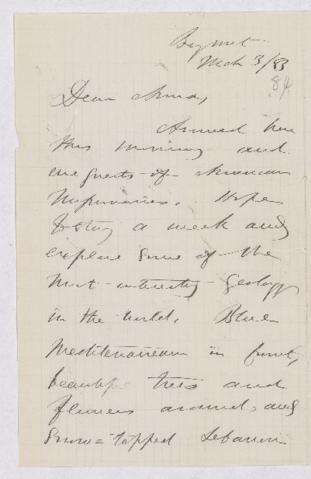 Beyrout
Mch 3/83
84
Dear Anna,
Arrived here
this morning and
are guests of American
Missionaries. Hope
to stay a week and
explore some of the
most interesting Geology
in the world. Blue
Mediterranean in front,
beautiful trees and
flowers around, and
Snow=topped Lebanon